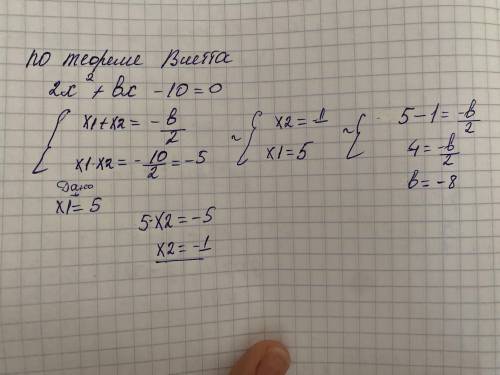 по теореме Виетта
2x² + bx - 10 = 0
{ x1 + x2 = - b/2
x1 · x2 = - 10/2 = -5
~ { x2 = -1
x1 = 5
~ { 5 - 1 = -b/2
4 = -b/2
b = -8
Дано
x1 = 5
5·x2 = -5
x2 = -1